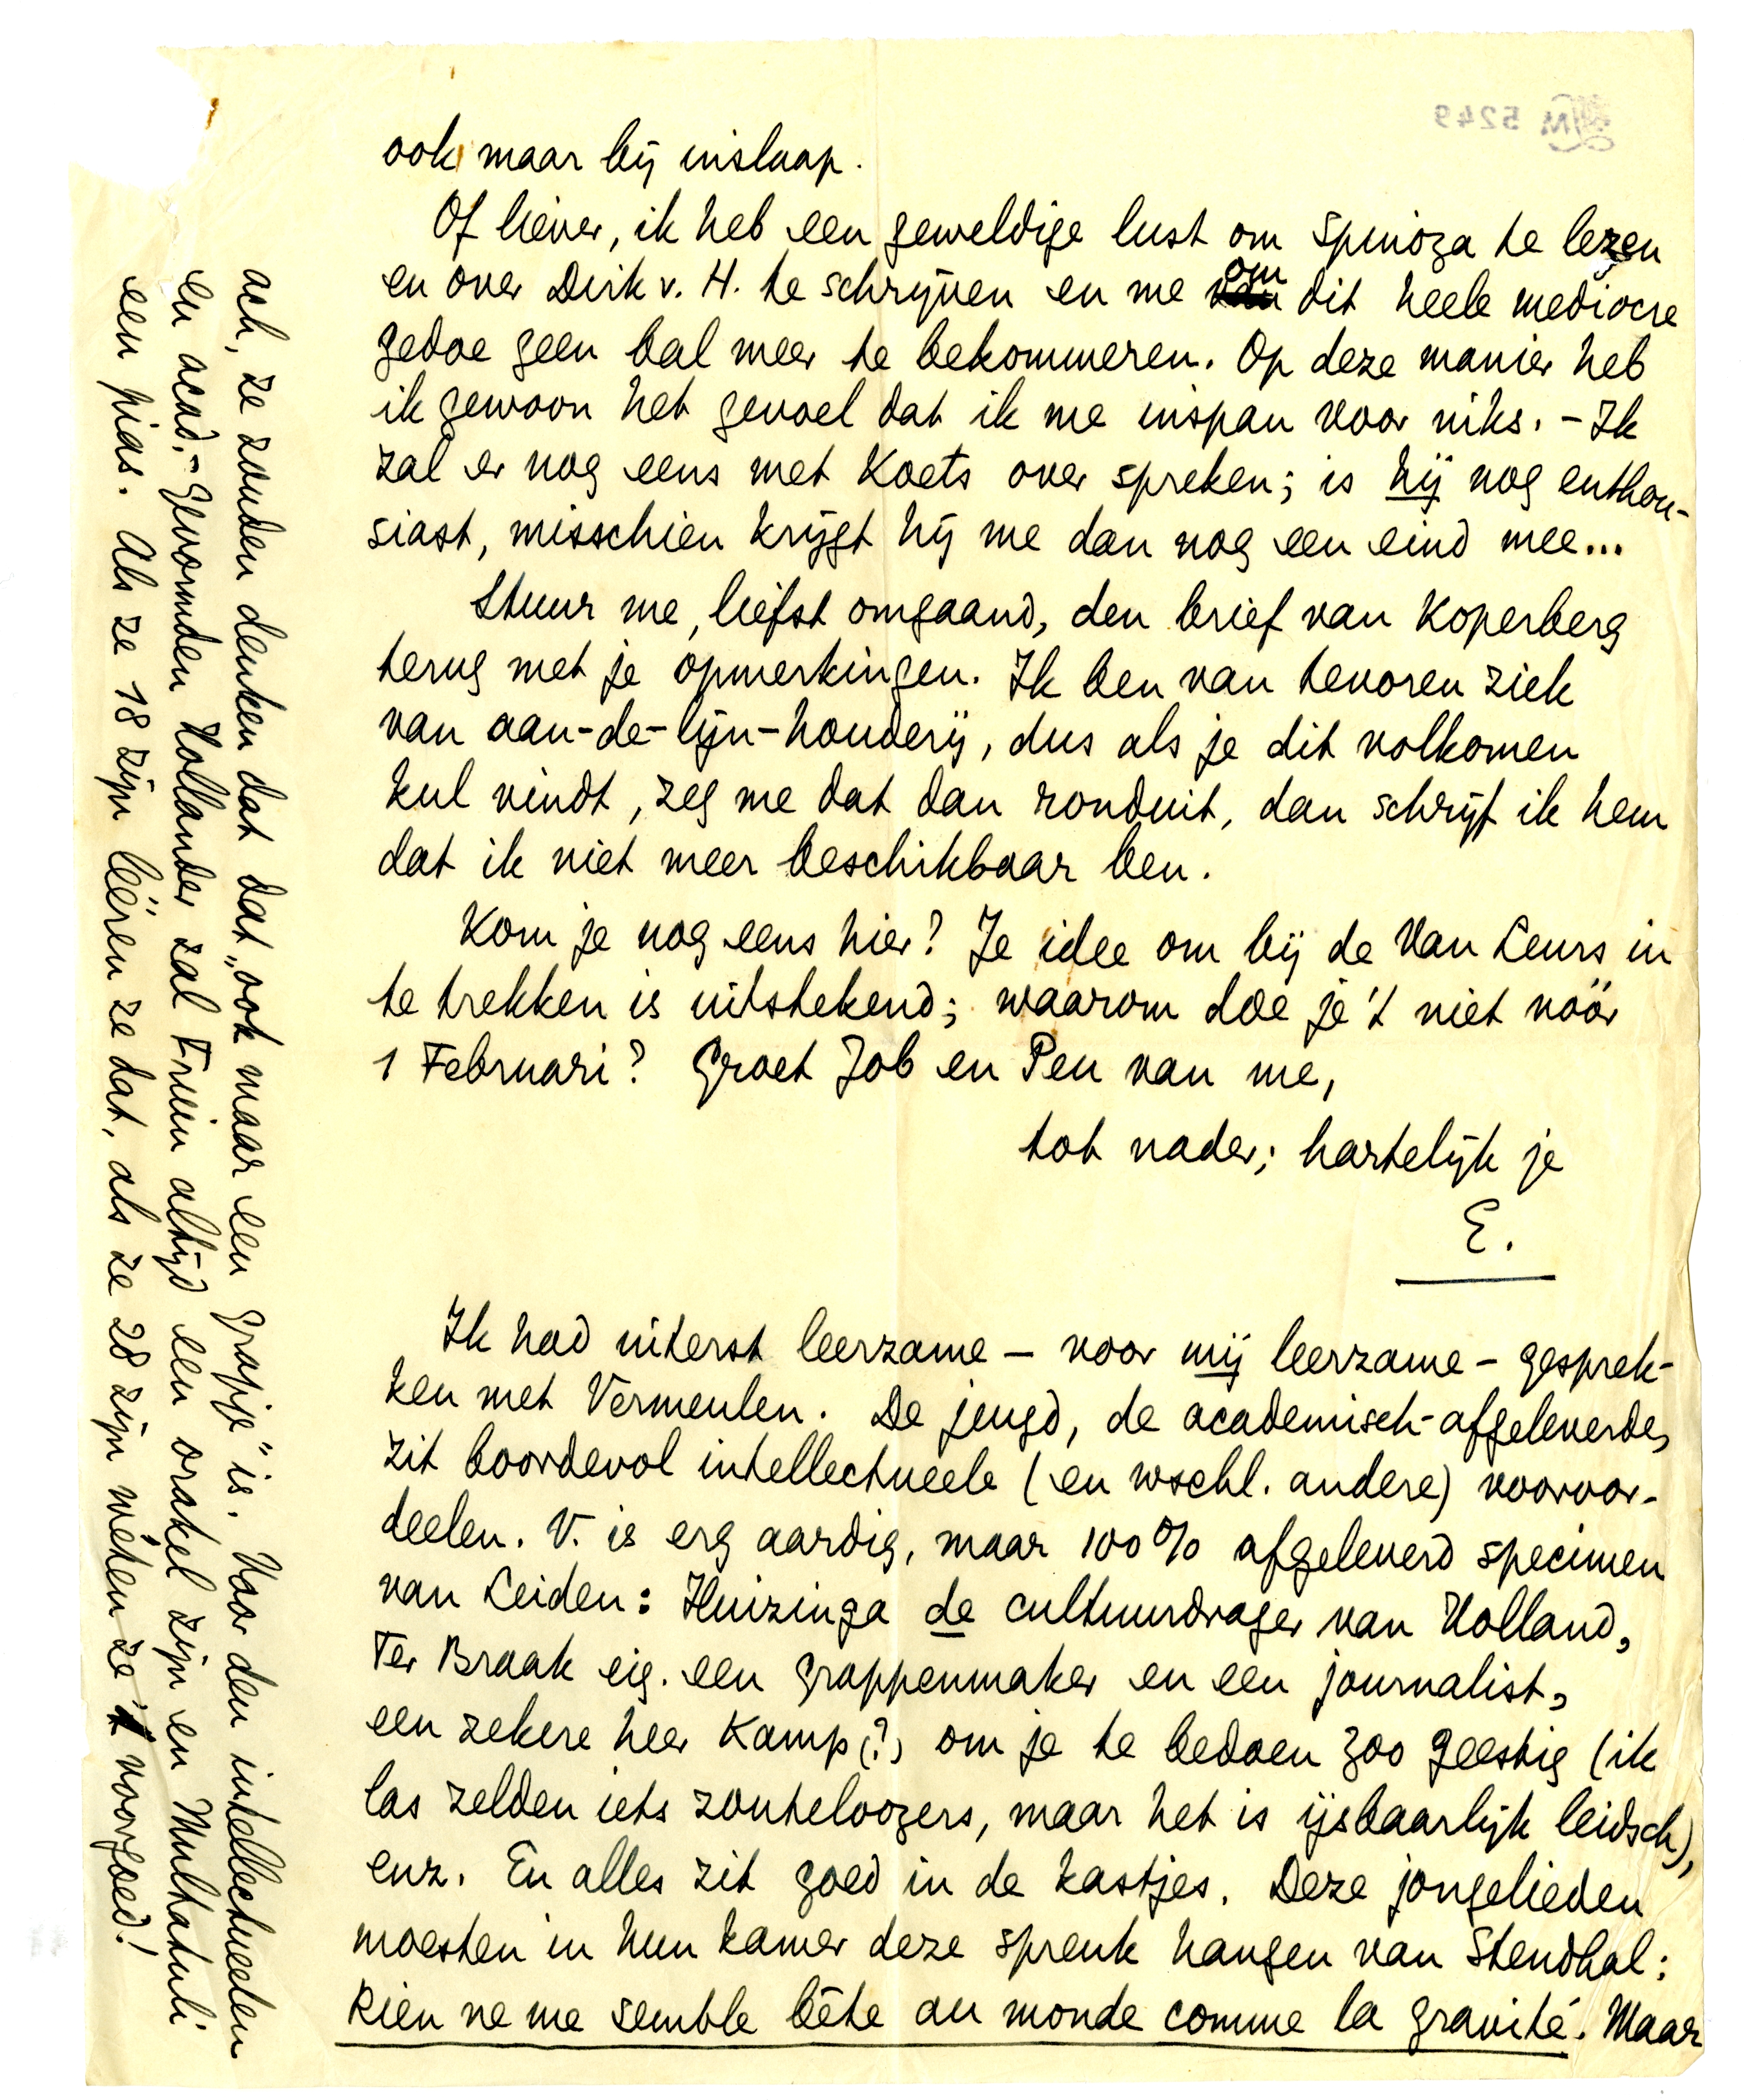 ook maar bij inslaap.
Of liever, ik heb een geweldige lust om Spinoza te lezen
en over Dirk v. H. te schrijven en me om dit heele mediocre
gedoe geen bal meer te bekommeren. Op deze manier heb
ik gewoon het gevoel dat ik me inspan voor niks. - Ik
zal er nog eens met Koets over spreken; is hij nog enthou-
siast, misschien krijgt hij me dan nog een eind mee...
Stuur me, liefst omgaand, den brief van Koperberg
terug met je opmerkingen. Ik ben van tevoren ziek
van aan-de-lijn-houderij, dus als je dit volkomen
kul vindt, zeg me dat dan ronduit, dan schrijf ik hem
dat ik niet meer beschikbaar ben.
Kom je nog eens hier? Je idee om bij de Van Leurs in
te trekken is uitstekend; waarom doe je 't niet vóór
1 Februari? Groet Job en Pen van me,
tot nader; hartelijk je
E.
Ik had uiterst leerzame — voor mij leerzame - gesprek-
ken met Vermeulen. De jeugd, de academisch-afgeleverde,
zit boordevol intellectueele (en wschl. andere) vooroor-
deelen. V. is erg aardig, maar 100% afgeleverd specimen
van Leiden: Huizinga de cultuurdrager van Holland,
Ter Braak eig. een grappenmaker en een journalist,
een zekere heer Kamp (?) om je te bedoen zoo geestig (ik
las zelden iets zouteloozers, maar het is ijsbaarlijk leidsch),
enz. En alles zit goed in de kastjes. Deze jongelieden
moesten in hun kamer deze spreuk hangen van Stendhal:
Rien ne me semble bête au monde comme la gravité. Maar
ach, ze zouden denken dat dat „ook maar een grapje" is. Voor den intellectueelen
en acad.-gevormden Hollander zal Fruin altijd een orakel zijn en Multatuli
een pias. Als ze 18 zijn léeren ze dat, als ze 28 zijn wéten ze 't voorgoed!
M 5249